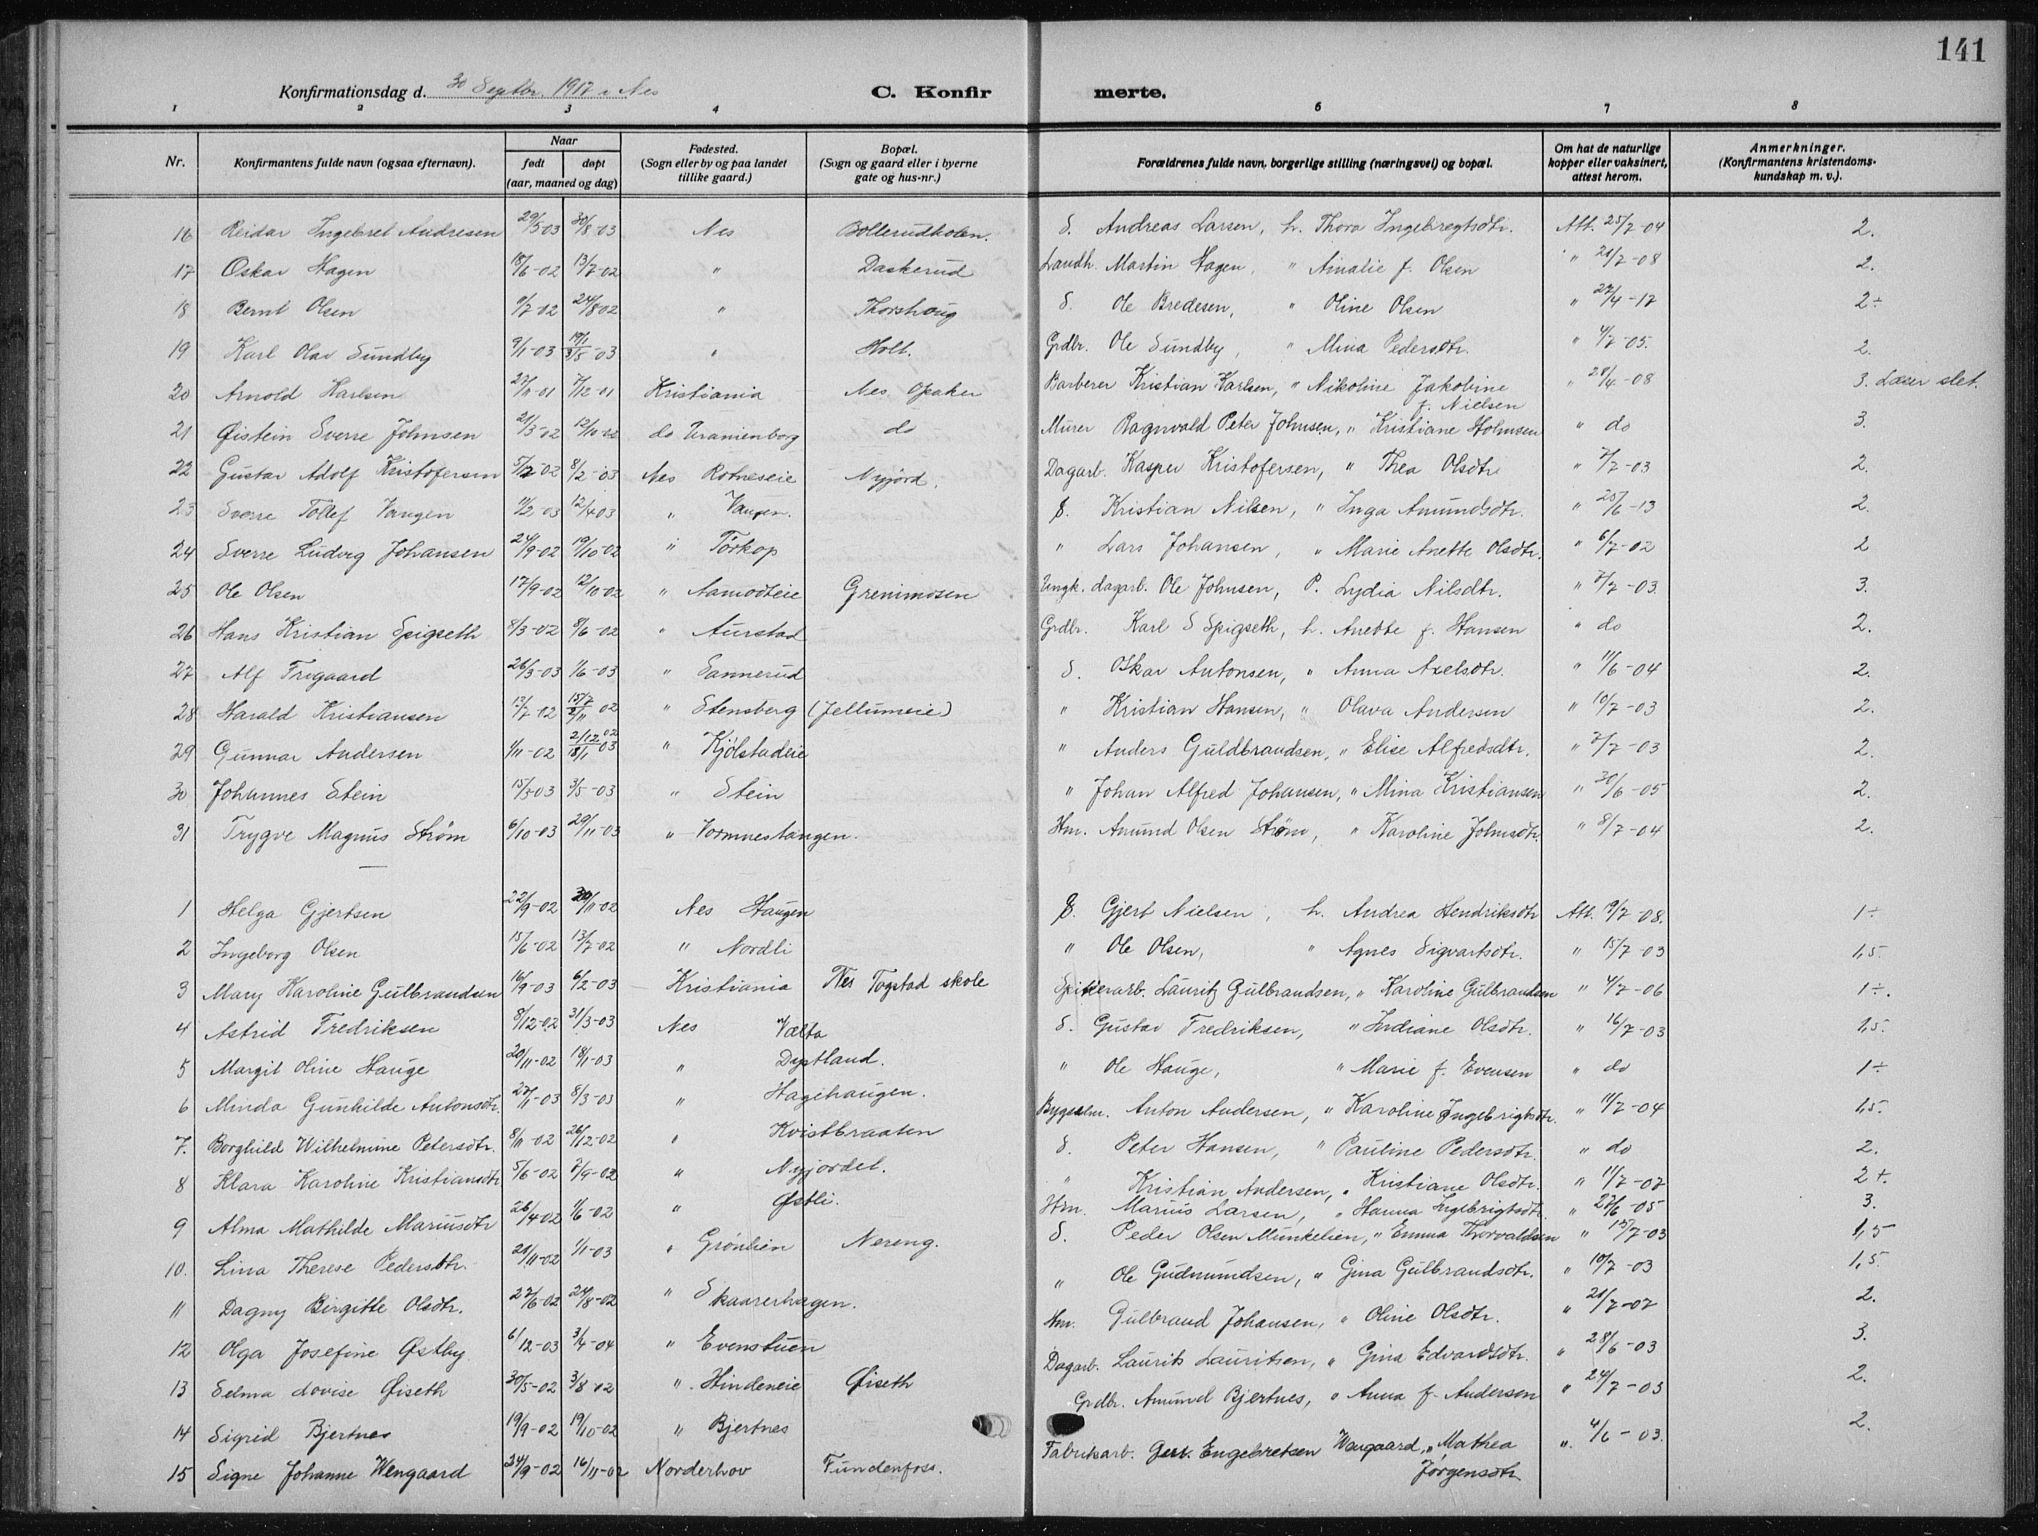 141
Konfirmationsdag d. 30 Septbr. 1917 i Nes C. Konfir merte.
1 2 3 4 6 7 8
Nr. Konfirmantens fulde navn (ogsaa efternavn). Naar født døpt (aar, maaned og dag) Fødested. (Sogn eller by og paa landet tillike gaard.) Bopæl. (Sogn og gaard eller i byerne gate og hus-nr.) Forældrenes fulde navn, borgerlige stilling (næringsvei) og bopæl. Om hat de naturlige kopper eller vaksinert, attest herom. Anmerkninger. (Konfirmantens kristendoms-kundskap m. v.).
16 Reidar Ingebret Andresen 29/5-03 30/8-03 Nes Bollerudholen. S. Andreas Larsen, h. Thora Ingebregtsdtr. Att. 25/7-04 2.
17 Oskar Hagen 18/6-02 13/7-02 " Daskerud Landh. Martin Hagen, " Amalie f. Olsen " 21/7-08 2.
18 Bernt Olsen 9/7-02 24/8 02 " Thorshoug S. Ole Bredesen, " Oline Olsen " 27/4-17 2÷
19 Karl Olav Sundby 9/1-03 19/1 3/8-03 " Holt. Grdbr. Ole Sundby, " Mina Pedersdtr. " 4/7-05. 2.
20 Arnold Karlsen 27/11-01 7/12-01 Kristiania Nes Opaker Barberer Kristian Karlsen, " Nikoline Jakobine f. Nielsen " 28/4-08 3. Læser slet.
21 Øistein Sverre Johnsen 21/3-02 12/10-02 do Uranienborg do Murer Ragnvald Peter Johnsen, " Kristiane Holmsen " do 3.
22 Gustav Adolf Kristofersen 5/12-02 8/2-03 Nes Rotneseie Nyjord. Dagarb. Kasper Kristofersen, " Thea Olsdtr " 7/7-03 2.
23 Sverre Tollef Vangen 11/2-03 12/4 03 " Vangen. S. Kristian Nilsen, " Inga Amundsdtr. " 25/6-13 2.
24 Sverre Ludvig Johansen 24/9-02 19/10-02 " Torkop " Lars Johansen, " Marie Anette Olsdtr. " 6/7-02 2
25 Ole Olsen 17/9-02 12/10-02 " Aamodteie Grenimosen Ungk. dagarb. Ole Johnsen, P. Lydia Nilsdtr. " 7/7-03. 3.
26 Hans Kristian Spigseth 8/3-02 8/6-02 " Aurstad Grdbr. Karl S Spigseth, h. Anette f. Hansen " do 2.
27 Alf Trygaard 26/3-03 1/6-03 " Sannerud S. Oskar Antonsen, " Anna Axelsdtr. " 11/6-04 2.
28 Harald Kristiansen 13/7-02 15/7 2/11 02 " Stensberg (Jellumeie) " Kristian Hansen, " Olava Andersen " 10/7-03 2.
29 Gunnar Andersen 1/11-02 2/12 02 18/1-03 " Kjølstadeie " Anders Guldbrandsen, " Elise Alfredsdtr. " 7/7-03 2.
30 Johannes Stein 15/3-03 3/5-03 " Stein " Johan Alfred Johansen, " Mina Kristiansen " 30/6-05 2.
31 Trygve Magnus Strøm 6/10-03 29/11-03 " Vormnestangen. Hm. Amund Olsen Strøm, " Karoline Johnsdtr. " 8/7-04 2.
1 Helga Gjertsen 22/9-02 30/11-02 Nes Haugen S. Gjert Nielsen, h. Andrea Hendriksdtr Att. 9/7-08. 1÷
2 Ingeborg Olsen 15/6-02 13/7-02 " Nordli " Ole Olsen, " Agnes Sigvartsdtr. " 15/7-03 1,5
3 Mary Karoline Gulbrandsen 16/9-03 6/12-03 Kristiania Nes Togstad skole Spikerarb. Lauritz Gulbrandsen, " Karoline Gulbrandsen " 4/7-06 1÷.
4 Astrid Fredriksen 8/12-02 31/3-03 Nes Vælta S. Gustav Fredriksen, " Indiane Olsdtr. " 16/7-03 1,5.
5 Margit Oline Hauge 20/11-02 18/1-03 " Dystland. " Ole Hauge, " Marie f. Evensen " do 1÷
6 Minda Gunhilde Antonsdtr. 27/11-03 8/3-03 " Hagihaugen. Bygselm. Anton Andersen, " Karoline Ingebrigtsdtr. " 11/7-04 1,5.
7. Borghild Wilhelmine Petersdtr. 8/11-02 26/12-02 " Kvistbraaten S. Peter Hansen, " Pauline Pedersdtr. " do 2.
8 Klara Karoline Kristiansdtr 5/6-02 7/9-02 " Nyjordet. " Kristian Andersen, " Kristiane Olsdtr. " 11/7-07 2+.
9 Alma Mathilde Mariusdtr 26/4-02 1/6-02 " Østli. Hm. Marius Larsen, " Hanna Ingebrigtsdtr. " 27/6-05 3.
10. Lina Therese Pedersdtr. 21/11-02 1/1-03 " Grønlien Nereng. S. Peder Olsen Munkelien, " Emma Thorvaldsen " 13/7-03 1,5
11 Dagny Birgitte Olsdtr. 27/6-02 24/8-02 " Skaarerhagen. " Ole Gudmundsen, " Gina Gulbrandsdtr. " 10/7-03 1,5.
12 Olga Josefine Østby 6/12-03 3/4-04 " Evenstuen Hm. Gulbrand Johansen, " Oline Olsdtr. " 21/7-07 2.
13 Selma Lovise Øiseth 30/5-02 3/8-02 " Hindeneie Øiseth Dagarb. Laurits Lauritsen, " Gina Edvardsdtr. " 28/6-03 3.
14 Sigrid Bjertnes 19/9-02 19/10-02 " Bjertnes Grdbr. Amund Bjertnes, " Anna f. Andersen " 24/7-03 2.
15 Signe Johanne Wengaard 24/9-02 16/11-02 Norderhov Fundenfoss. Fabrikarb. Gert. Engebretsen Wengaard, " Mathea Jørgensdtr. " 4/6-03. 2.